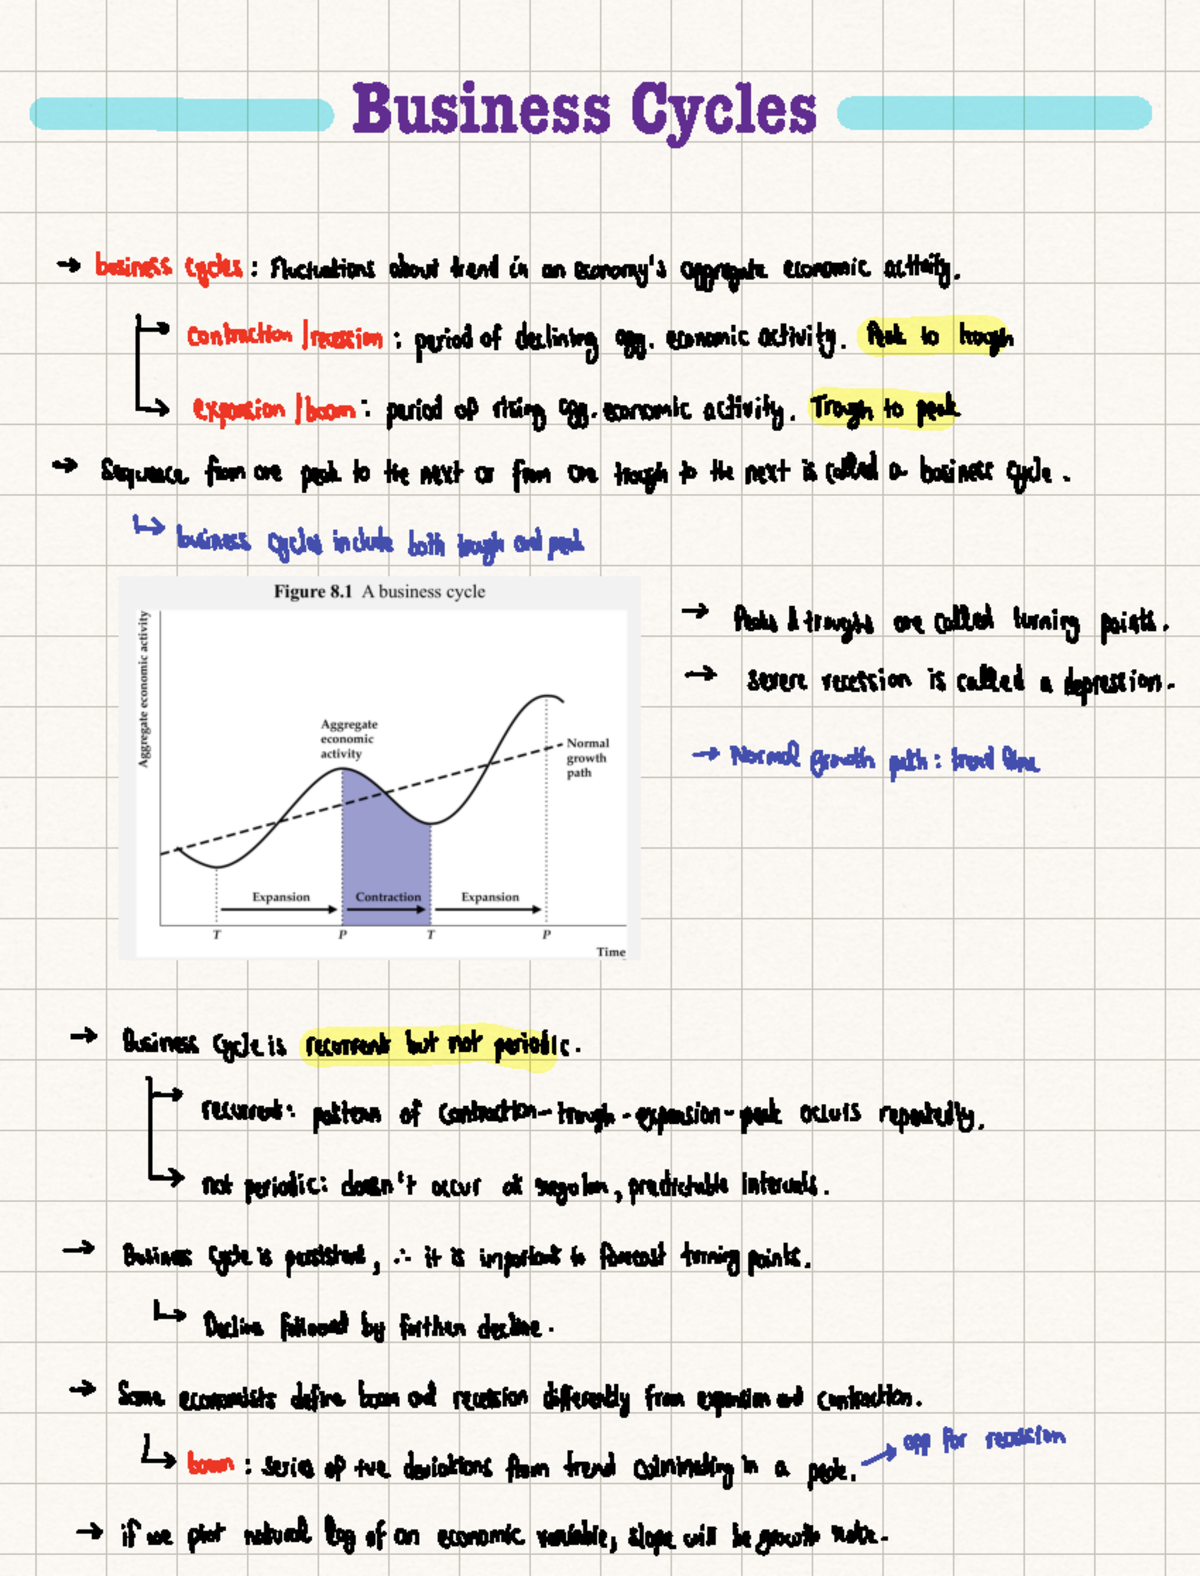 Business Cycles
→ business cycles : Fluctuations about trend in an economy's aggregate economic activity.
↳ contraction / recession : period of declining agg. economic activity. Peak to trough
↳ expansion / boom : period of rising agg. economic activity. Trough to peak
→ Sequence from one peak to the next or from one trough to the next is called a business cycle.
↳ business cycles include both trough and peak
Figure 8.1 A business cycle
Aggregate economic activity
Aggregate
economic
activity
Normal
growth
path
Expansion
Contraction
Expansion
T P T P
Time
→ Peaks & troughs are called turning points.
→ severe recession is called a depression.
→ Normal growth path : trend line
→ Business Cycle is recurrent but not periodic.
↳ recurrent: pattern of contraction-trough-expansion-peak occurs repeatedly.
↳ not periodic: doesn't occur at regular, predictable intervals.
→ Business Cycle is persistent, ∴ it is important to forecast turning points.
↳ Decline followed by further decline.
→ Some economists define boom and recession differently from expansion and contraction.
↳ boom : series of +ve deviations from trend culminating in a peak. → opp for recession
→ if we plot natural log of an economic variable, slope will be growth rate.